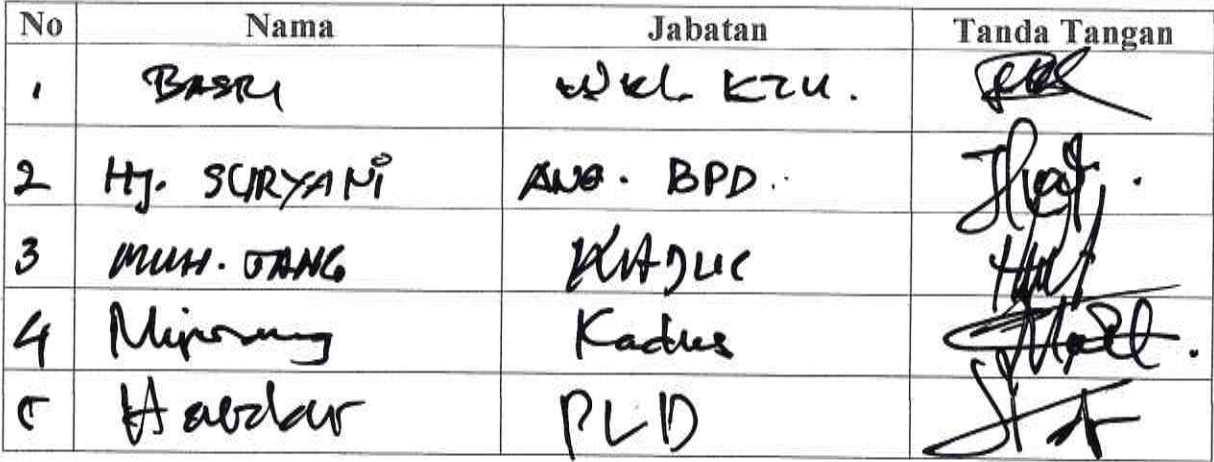 No Nama Jabatan Tanda Tangan
1 BASRI Wkl KTU.
2 Hj. SURYANI ANG. BPD.
3 MUH. JANG KADUS
4 Kadus
5 PLD